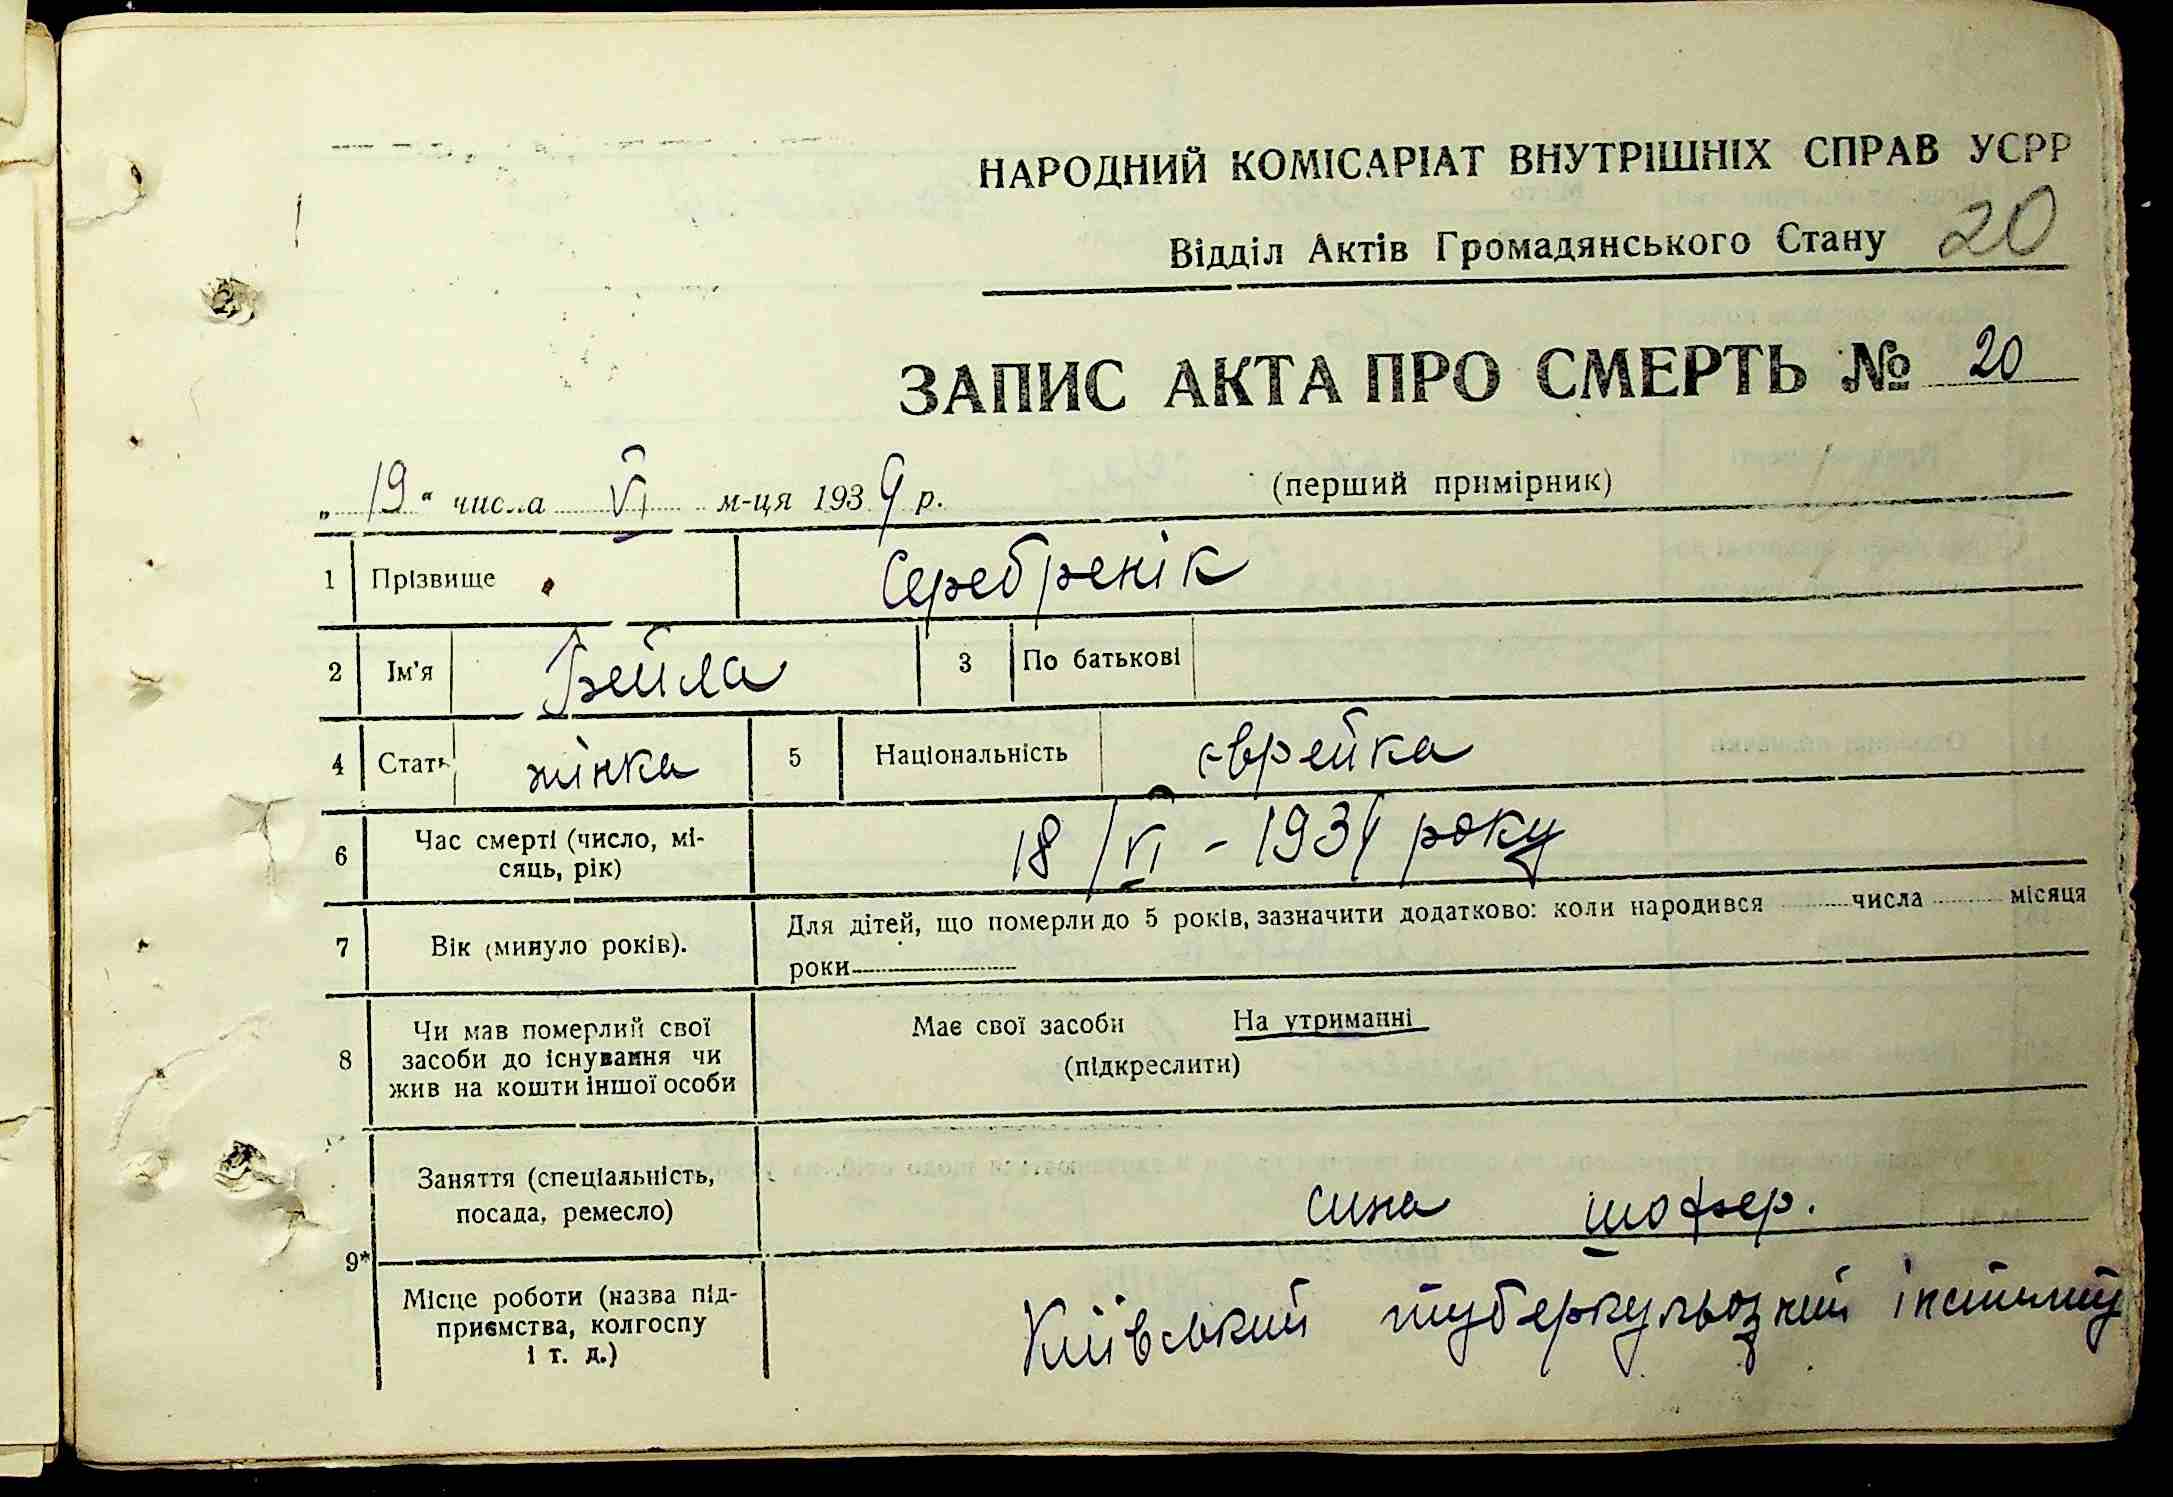 НАРОДНИЙ КОМІСАРІАТ ВНУТРІШНІХ СПРАВ УСРР
Відділ Актів Громадянського Стану 20
ЗАПИС АКТА ПРО СМЕРТЬ № 20
„19“ числа VI м-ця 1934 р. (перший примірник)
1 Прізвище Серебренік
2 Ім'я Бейла 3 По батькові
4 Стать жінка 5 Національність єврейка
6 Час смерті (число, мі-
сяць, рік) 18/VI - 1934 року
7 Вік (минуло років). Для дітей, що померли до 5 років, зазначити додатково: коли народився числа місяця
роки
8 Чи мав померлий свої
засоби до існування чи
жив на кошти іншої особи
Має свої засоби На утриманні
(підкреслити)
9* Заняття (спеціальність,
посада, ремесло) сина шофер.
Місце роботи (назва під-
приємства, колгоспу
і т. д.) Київський туберкульозний інститут